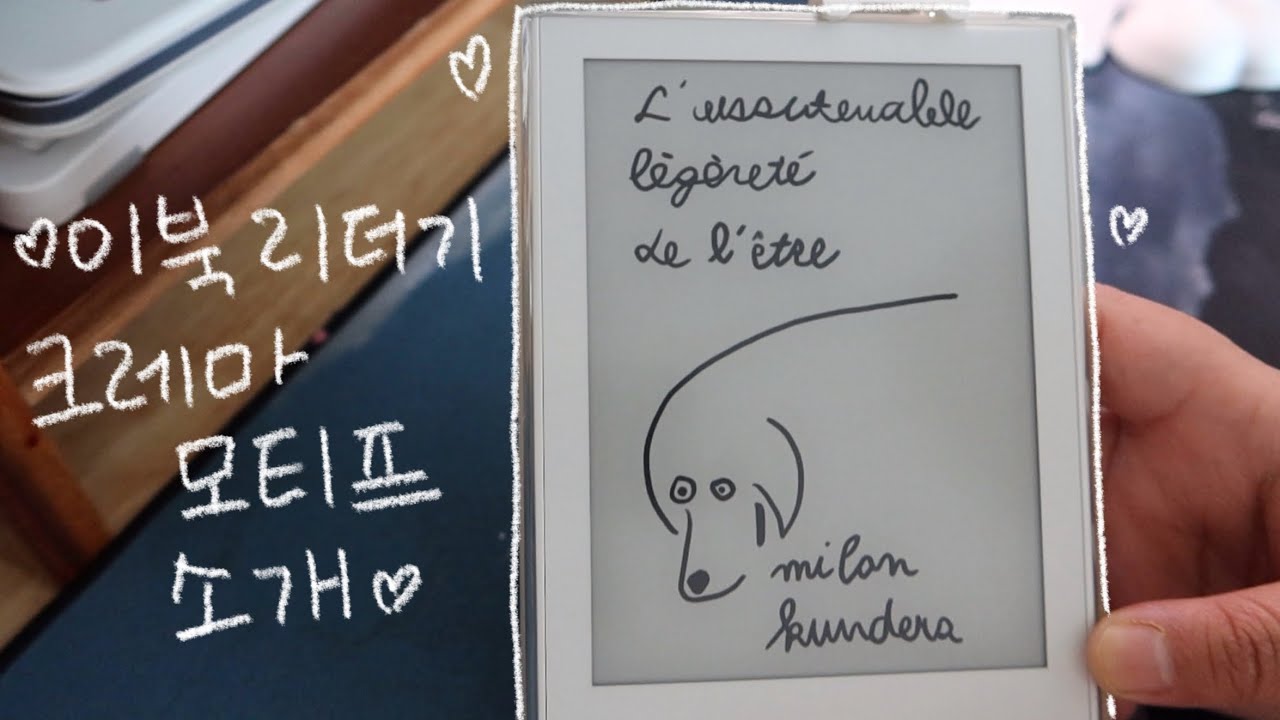 이북 리더기
크레마
모티프
소개
L'insoutenable
légèreté
de l'être
milan
kundera